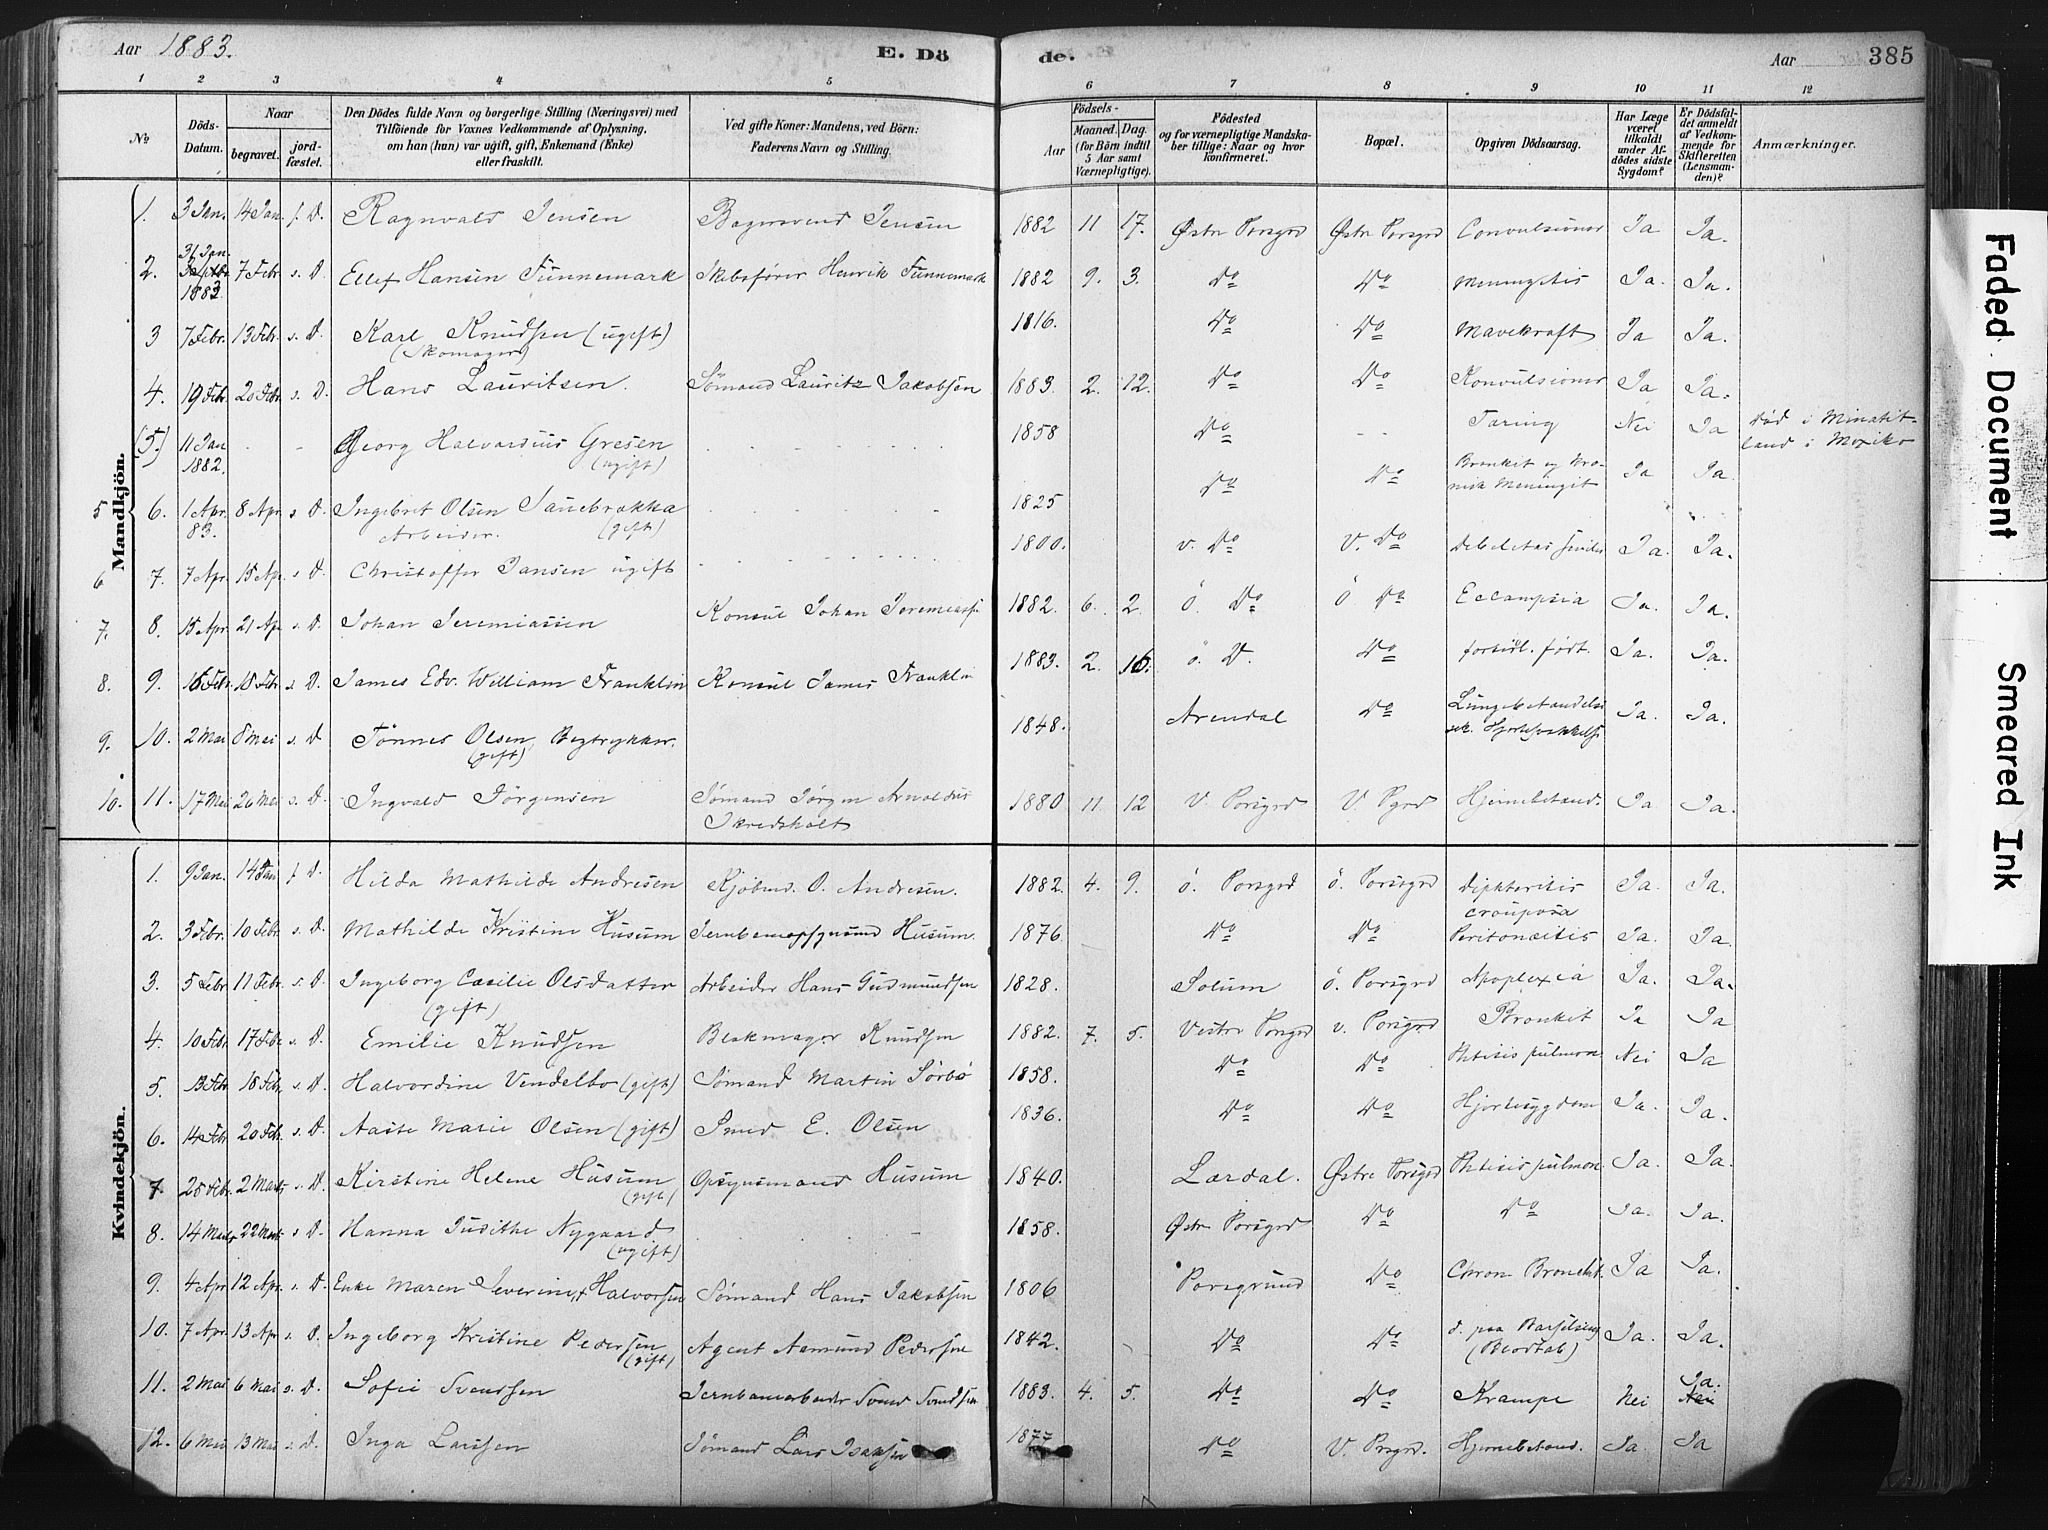 Aar 1883. E. Dö de. Aar 385
1 2 3 4 5 6 7 8 9 10 11 12
No Döds-Datum. Naar begravet. jord-fæstet. Den Dödes fulde Navn og borgerlige Stilling (Næringsvei) med Tilföiende for Voxnes Vedkommende af Oplysning, om han (hun) var ugift, gift, Enkemand (Enke) eller fraskilt. Ved gifte Koner: Mandens, ved Börn: Faderens Navn og Stilling. Födsels- Aar Maaned. Dag. (for Börn indtil 5 Aar samt Værnepligtige). Födested og for værnepligtige Mandska-ber tillige: Naar og hvor konfirmeret. Bopæl. Opgiven Dödsaarsag. Har Læge været tilkaldt under Af-dödes sidste Sygdom? Er Dödsfal-det anmeldt af Vedkom-mende for Skifteretten (Lensman-den)? Anmærkninger.
Mandkjön.
1. 3 Jan. 14 Jan. f. D. Ragnvald Jensen Bagersvend Jensen 1882 11 17. Østre Porsgrd Østre Porsgrd Convulsioner Ja Ja.
2. 31 Jan. 1883. 7 Febr s. D. Ellef Hansen Funnemark Skibsfører Henrik Funnemark 1882 9. 3. Do Do Meningitis Ja. Ja.
3 7 Febr. 13 Febr. s. D. Karl Knudsen (ugift) 1816. Do Do Mavekræft Ja Ja.
(Skomager)
4. 19 Febr. 20 Febr. s. D. Hans Lauritsen. Sømand Lauritz Jakobsen 1883. 2. 12. Do Do Konvulsioner Ja Ja.
(5.) 11 Jan 1882. - - Georg Halvardius Gresen (ugift) 1858 Do - - Tæring Nei Ja Død i Minatit-
land i Mexiko
5 6. 1 Apr. 83. 8 Apr. s. D. Ingebret Olsen Sauebrækka 1825 Do Do Bronkit og kro-
nisk Meningit Ja Ja
Arbeider. (gift)
6 7. 7 Apr. 15 Ap. s. D. Christoffer Jansen ugift 1800. v. Do V. Do Debilitas senilis Ja. Ja.
7. 8. 15 Apr. 21 Ap s. D. Johan Jeremiassen Konsul Johan Jeremiassen 1882. 6. 2. Ö. Do Ö. Do Eccampsia Ja. Ja.
8. 9. 16 Febr. 18 Febr s. D. James Edv. William Franklin Konsul James Franklin 1883. 2. 16. ö. D. Do fortidl. født. Ja. Ja.
9. 10. 2 Mai 8 Mei s. D Tönnes Olsen, Bogtrykker. (gift) 1848. Arendal Do Lungebetændelse Ja. Ja.
10. 11. 17 Mai 26 Mei s. D. Ingvald Jörgensen Sømand Jörgen Arnoldus 1880 11. 12 V Porsgrd V. Pgrd Hjernebetænd. Ja Ja.
Skredsholt
Kvindekjön.
1. 9 Jan. 14 Jan f. D. Hilda Mathilde Andresen Kjøbmd. O. Andresen. 1882. 4. 9. ö. Porsgrd ö. Porsgrd Diphteritis Ja. Ja.
crouposa
2. 3 Febr. 10 Febr. s. D. Mathilde Kristine Husum Jernbaneopsynsmd Husum. 1876. Do Do Peritonæitis Ja. Ja.
3. 5 Febr 11 Febr. s. D. Ingeborg Cæcilie Olsdatter Arbeider Hans Gudmundsen 1828. Solum ö. Porsgrd Apoplexia Ja. Ja.
(gift)
4. 10 Febr. 17 Febr s. D. Emilie Knudsen Blokmager Knudsen 1882. 7. 5. Vestre Porsgrd v. Porsgrd Bronkit Ja Ja
5. 13 Febr 18 Febr. s. D. Halvordine Vendelbo (gift) Sømand Martin Sörbö 1858. Do Do Phtisis pulmon. Nei Ja
6. 14 Febr 20 Febr. s. D. Aaste Marie Olsen (gift) Smed E. Olsen 1836. Do Do Hjertesygdom Ja. Ja.
7. 25 Febr. 2 Marts s. D. Kirstine Helene Husum (gift) Opsynsmand Husum 1840. Lærdal. Østre Porsgrd Phtisis pulmon. Ja. Ja.
8. 14 Marts 22 Marts s. D. Hanna Judithe Nygaard (ugift) 1858. Østre Porsgrd Do Do Ja. Ja.
9. 4 Apr. 12 Apr. s. D. Enke Maren Severine Halvorsen Sømand Hans Jakobsen 1806 Porsgrund Do Chron. Bronchit. Ja Ja.
10. 7 Apr. 13 Apr s. D. Ingeborg Kristine Pedersen (gift) Agent Aamund Pedersen 1842. Do Do d. paa Barselseng Ja. Ja.
(Blodtab)
11. 2 Mai 6 Mai s. D. Sofie Svendsen Jernbanearbeider Svend Svendsen 1883. 4. 5. Do Do Krampe Nei Ja. Nei
12. 6 Mai 13 Mai s. D. Inga Larssen Sømand Lars Isaksen 1877 Do V. Porsgrd. Hjernebetænd. Ja Ja
Faded Document
Smeared Ink